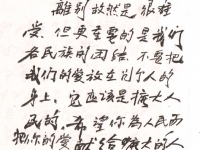 离别故然是很难
受，但更重要的是我们
各民族的团结，不要把
我们的爱放在别个人的
身上，它应该是广大人
民的，希望你为人民而
把你的爱献给广大的人